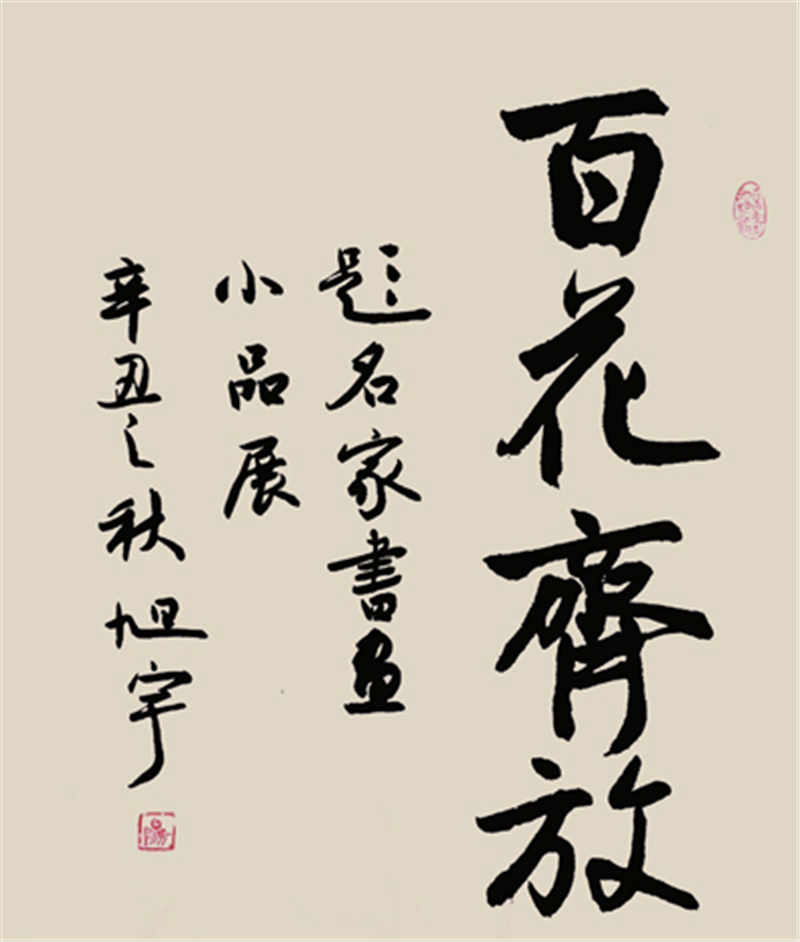 百花齊放
題名家書畫
小品展
辛丑之秋旭宇